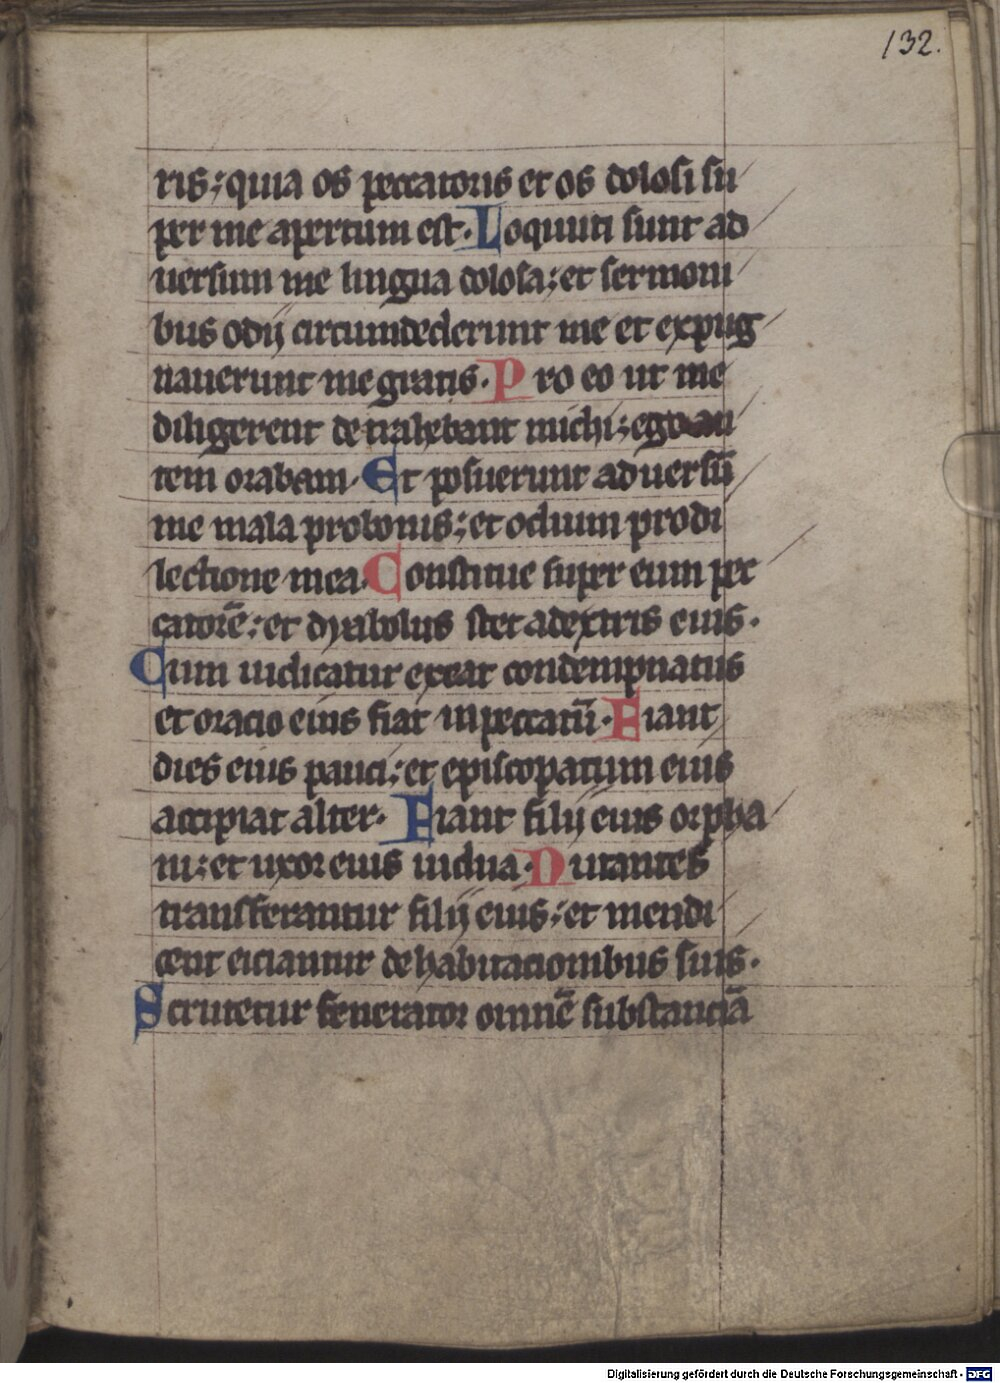 132.
ris; quia os peccatoris et os dolosi su
per me apertum est. Loquuti sunt ad
uersum me lingua dolosa; et sermoni
bus odij circumdederunt me et expug
nauerunt me gratis. Pro eo ut me
diligerent detrahebant michi; ego au
tem orabam. Et posuerunt aduersū
me mala pro bonis; et odium pro di
lectione mea. Constitue super eum pec
catorē; et dyabolus stet a dextris eius.
Cum iudicatur exeat condempnatus
et oracio eius fiat in peccatū. Fiant
dies eius pauci; et episcopatum eius
accipiat alter. Fiant filij eius orpha
ni; et uxor eius uidua. Nutantes
transferantur filij eius; et mendi
cent eiciantur de habitacionibus suis.
Scrutetur fenerator omnē substanciā
Digitalisierung gefördert durch die Deutsche Forschungsgemeinschaft - DFG